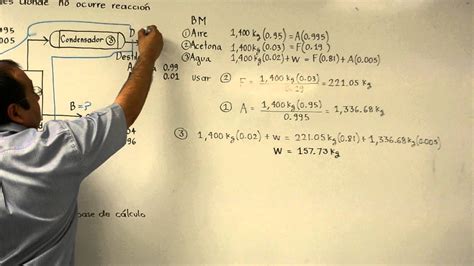 es donde no ocurre reacción
995
005
Condensador ③
D
Desti
A 0.99
0.01
B = ?
04
96
base de cálculo
BM
① Aire 1,400 kg (0.95) = A(0.995)
② Acetona 1,400 kg (0.03) = F(0.19)
③ Agua 1,400 kg (0.02) + W = F(0.81) + A(0.005)
usar ② F = 1,400 kg (0.03) / 0.19 = 221.05 kg
① A = 1,400 kg (0.95) / 0.995 = 1,336.68 kg
③ 1,400 kg (0.02) + W = 221.05 kg (0.81) + 1,336.68 kg (0.005)
W = 157.73 kg